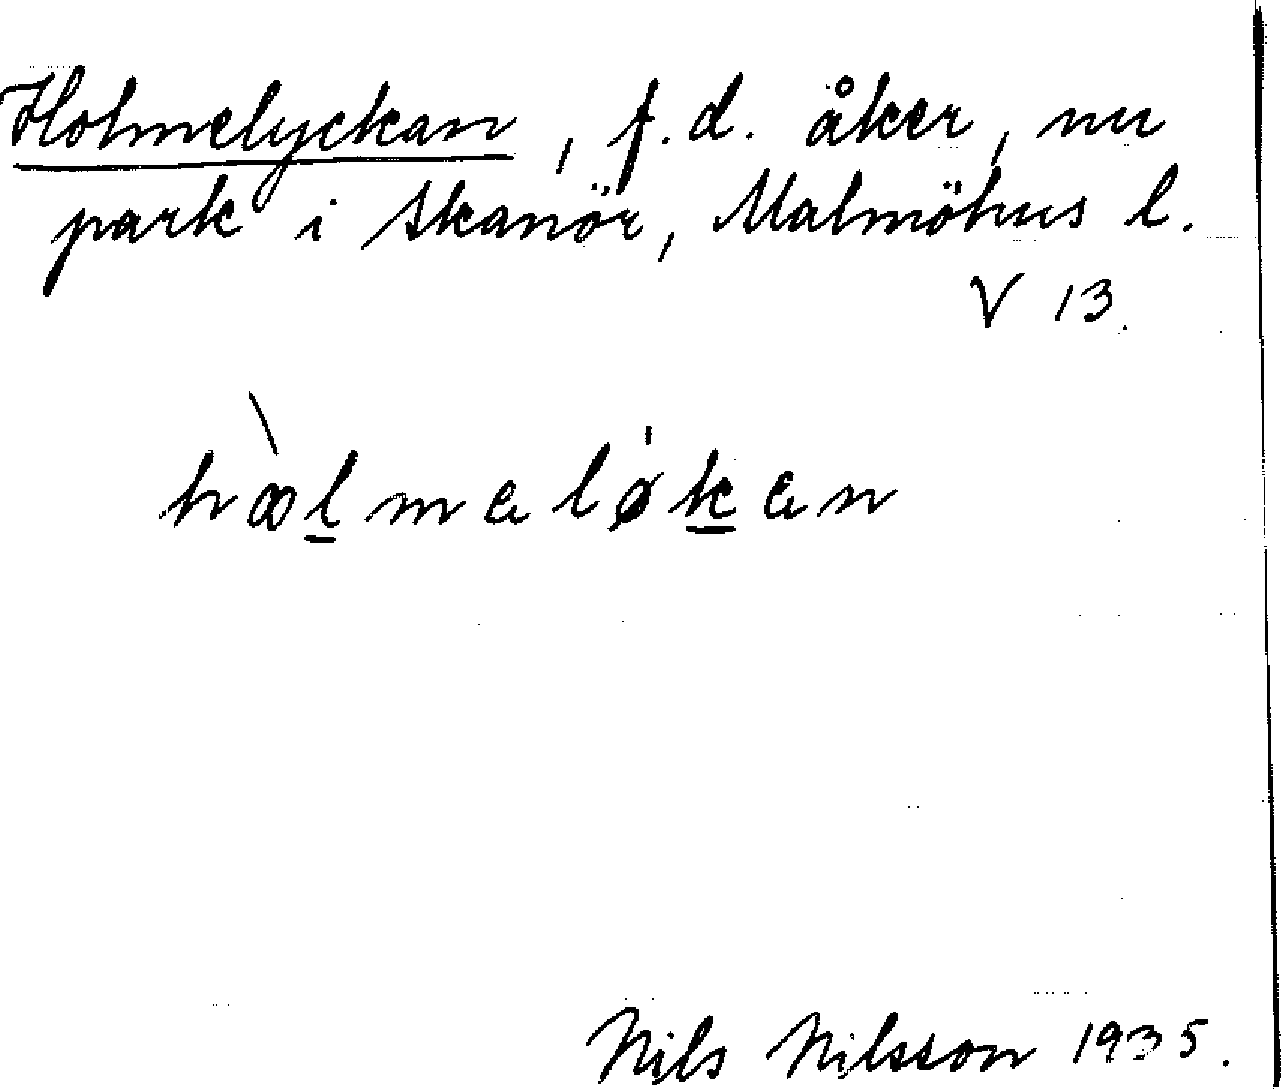 Holmelyckan, f.d. åker, nu
park i Skanör, Malmöhus l.
V 13.
hꝏ̀l̲mɐløˈk̲ɐn
Nils Nilsson 1935.